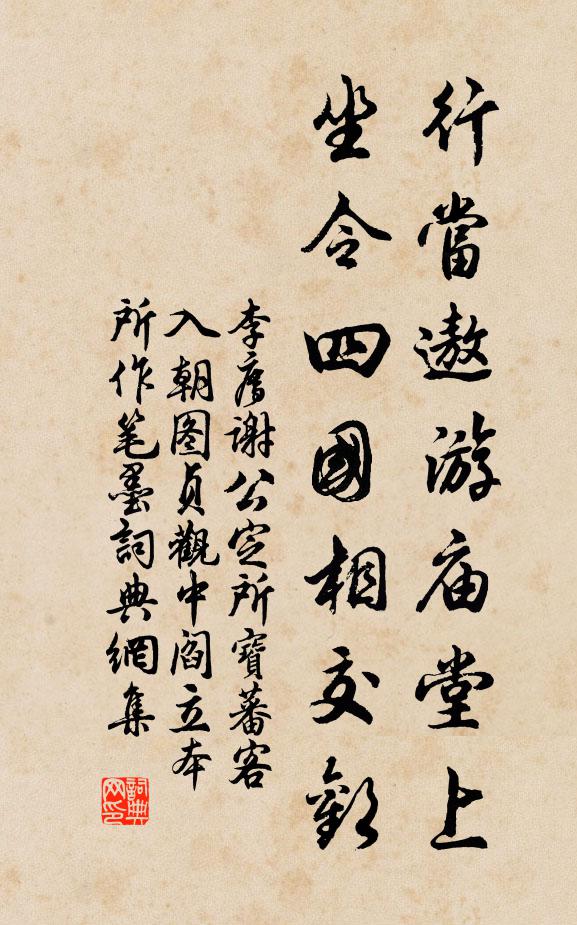 行當遨游庙堂上
坐令四國相交歡
李廌谢公定所寶蕃客
入朝图貞觀中阎立本
所作笔墨詞典網集
詞典网印